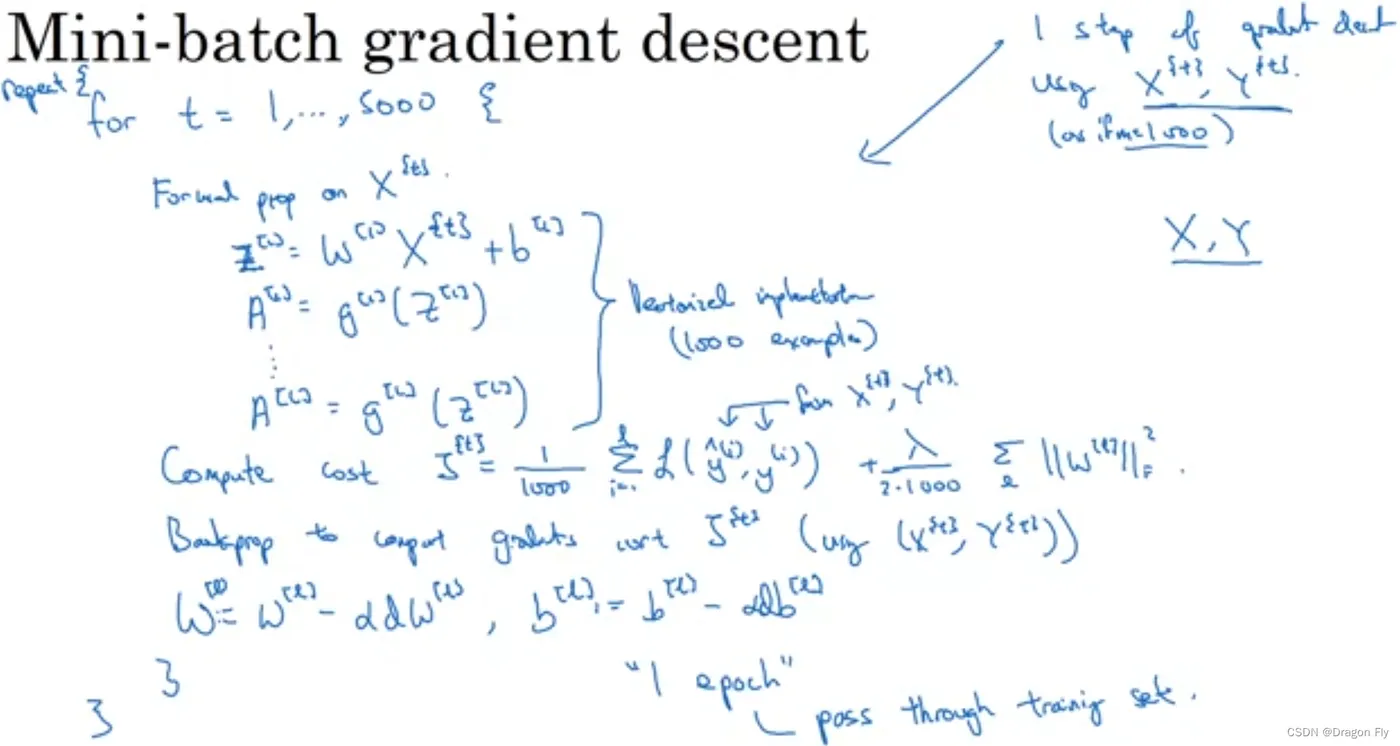 Mini-batch gradient descent
1 step of gradient descent
using X^{t}, Y^{t}.
(as if m=1000)
repeat {
for t = 1,...,5000 {
X, Y
Forward prop on X^{t}.
Z^[1] = W^[1] X^{t} + b^[1]
A^[1] = g^[1](Z^[1])
⋮
A^[L] = g^[L](Z^[L])
Vectorized implementation
(1000 examples)
from X^{t}, Y^{t}.
Compute cost J^{t} = 1/1000 Σ_{i=1}^{l} L(ŷ^(i), y^(i)) + λ/(2·1000) Σ_l ||W^[l]||_F^2.
Backprop to compute gradients wrt J^{t} (using (X^{t}, Y^{t}))
W^[l] := W^[l] - αdW^[l], b^[l] := b^[l] - αdb^[l]
}
}
"1 epoch"
pass through training set.
CSDN @Dragon Fly